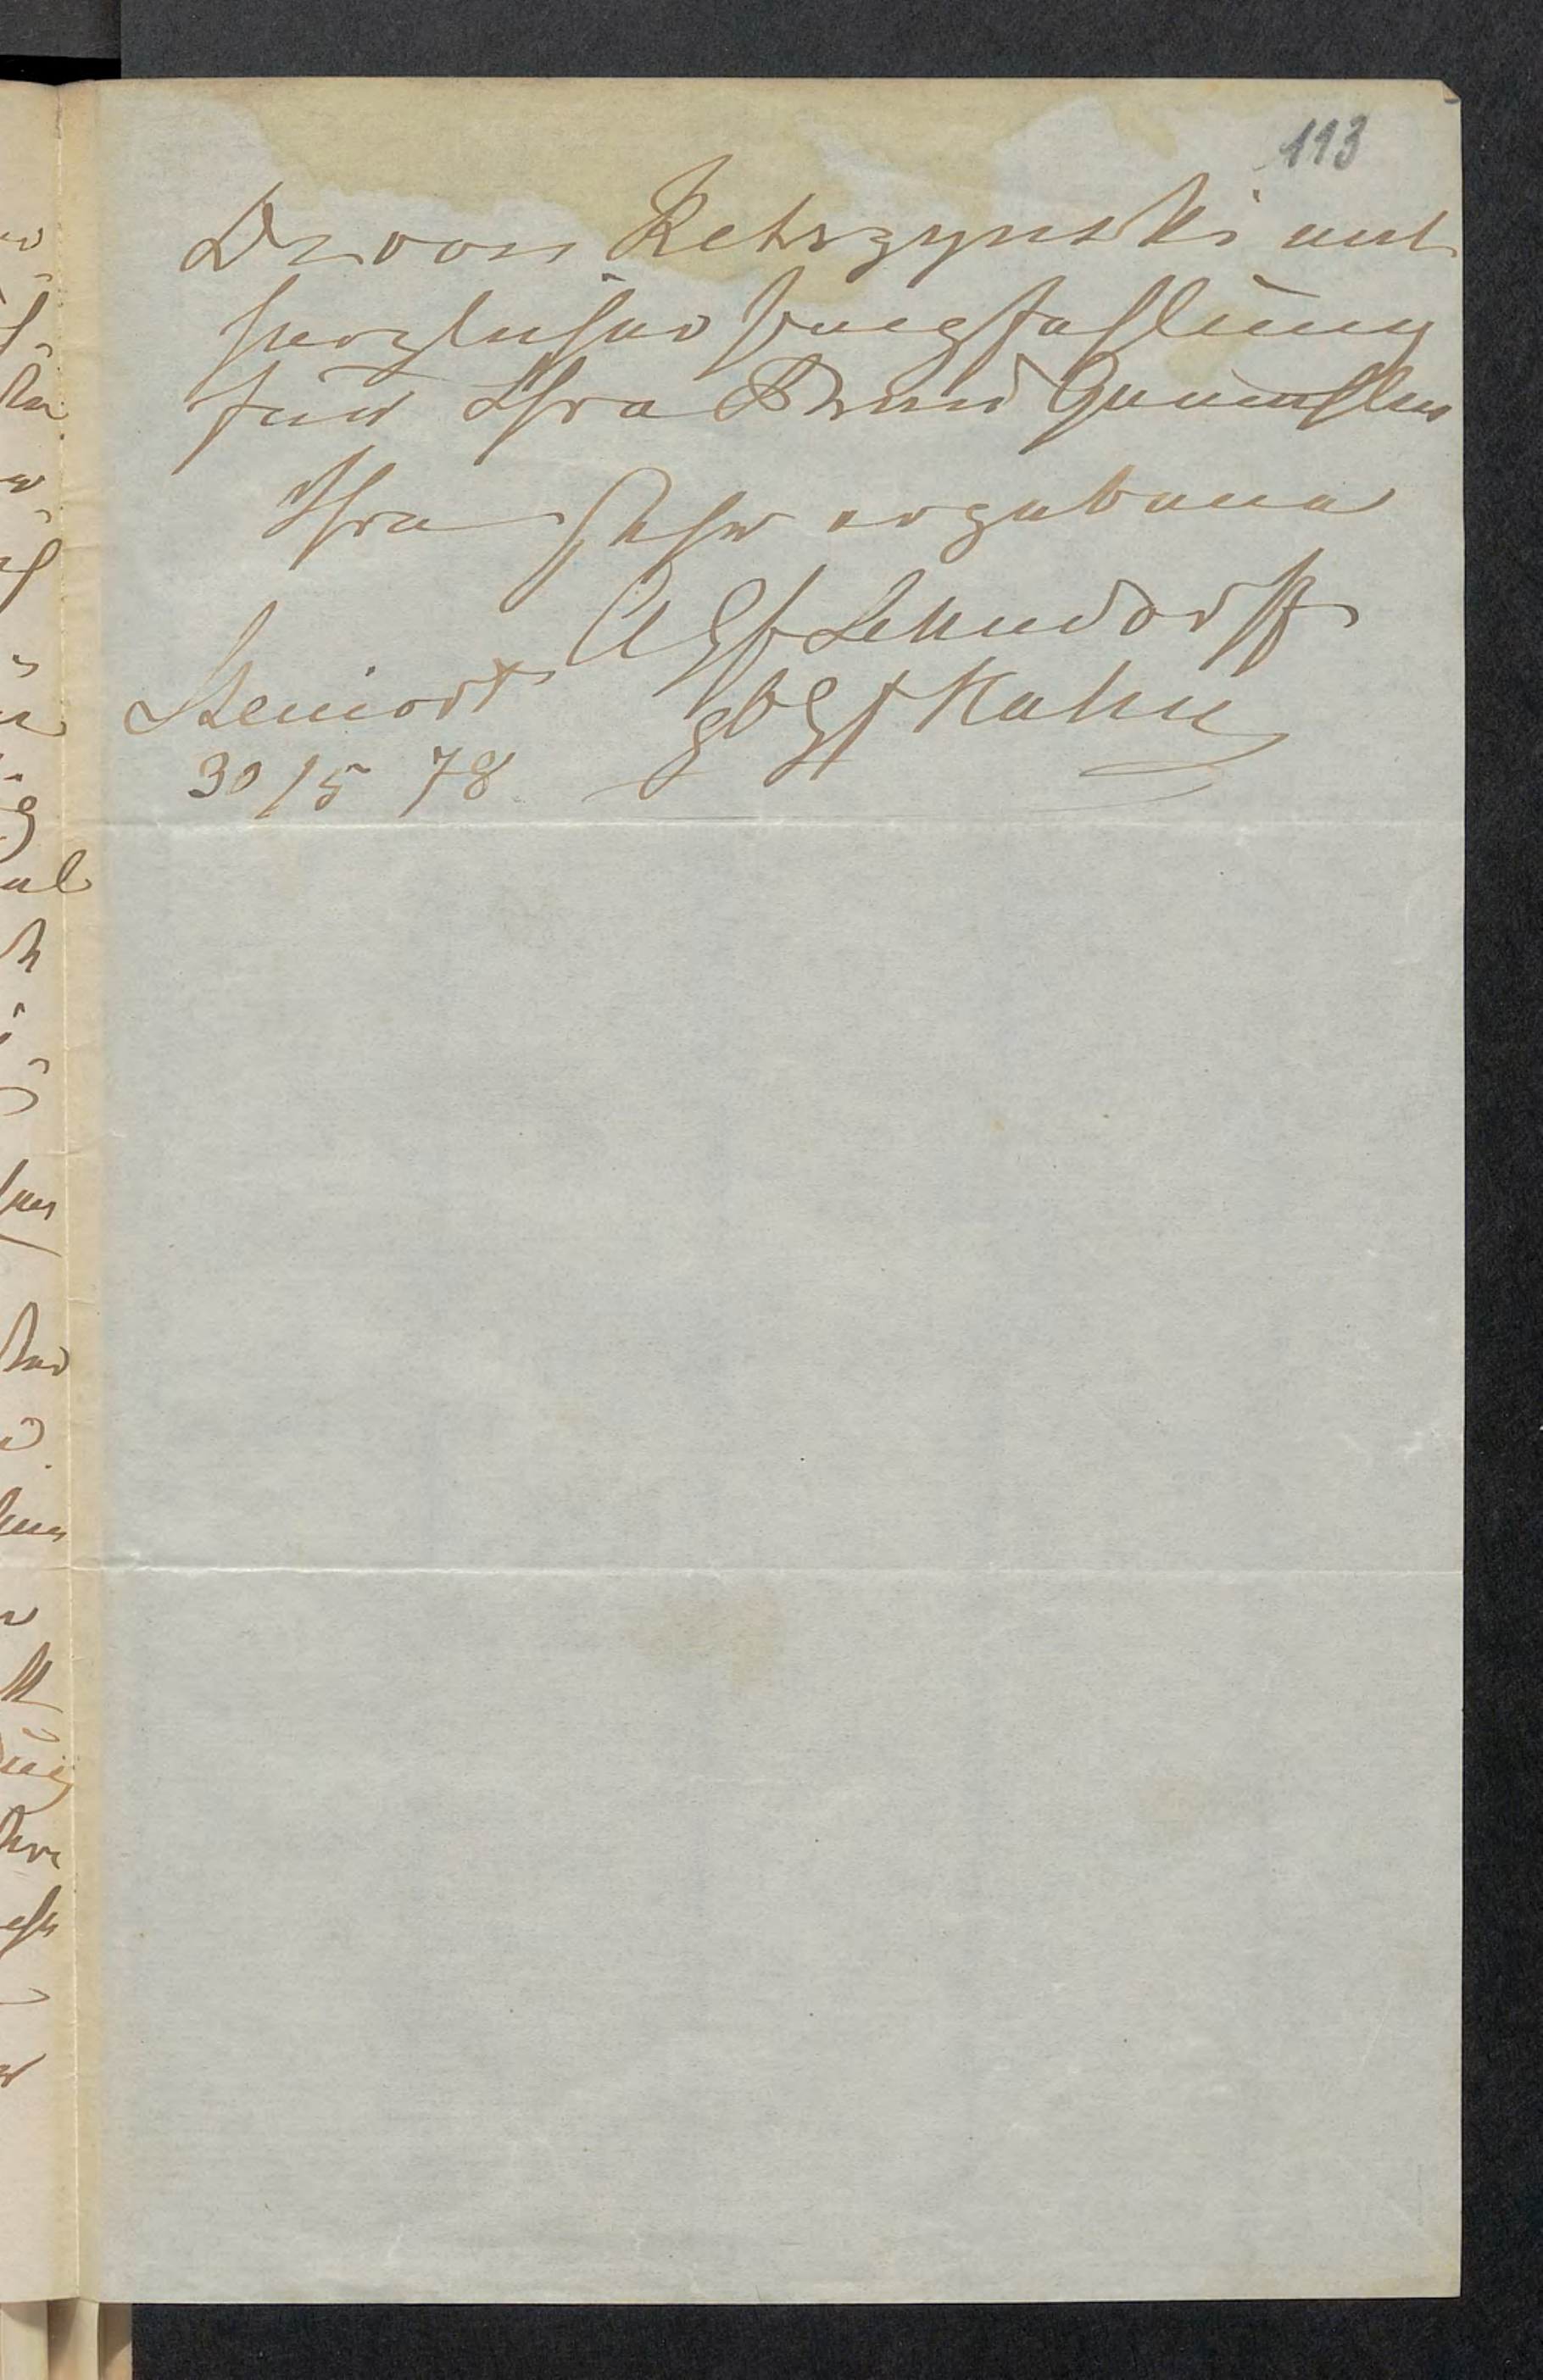 113
Dr von Ketrzynski mit
herzlicher Empfehlung
für Ihre Frau Gemahlin
Ihre sehr ergebene
A Gf Lehndorff
gb Gf Hahn
Steinort
30/5 78